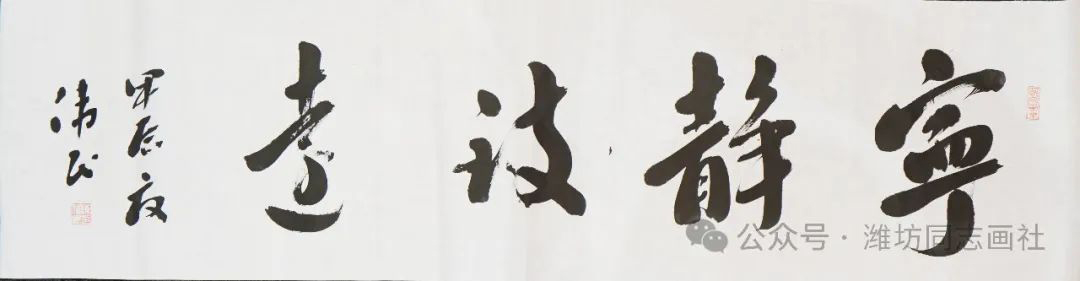 寧靜致遠
甲辰夏
伟民
公众号 · 潍坊同志画社